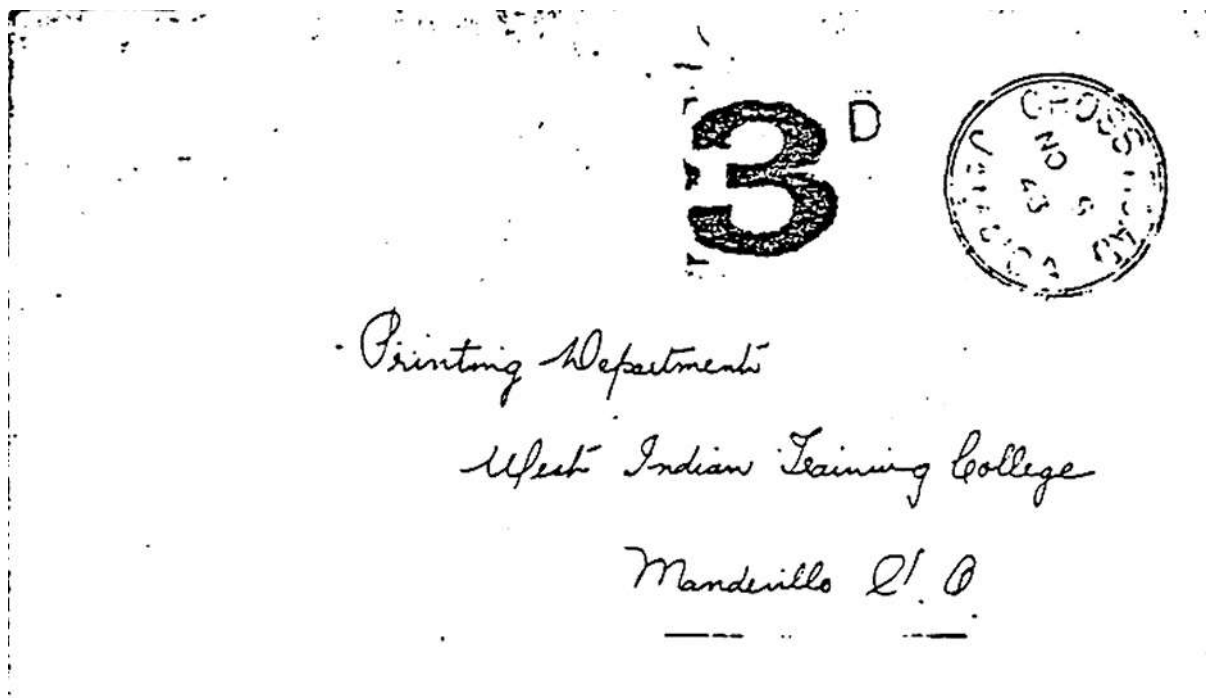 3D
CROSS ROAD
JAMAICA
NO 6
43
Printing Department
West Indian Training College
Mandeville P.O.